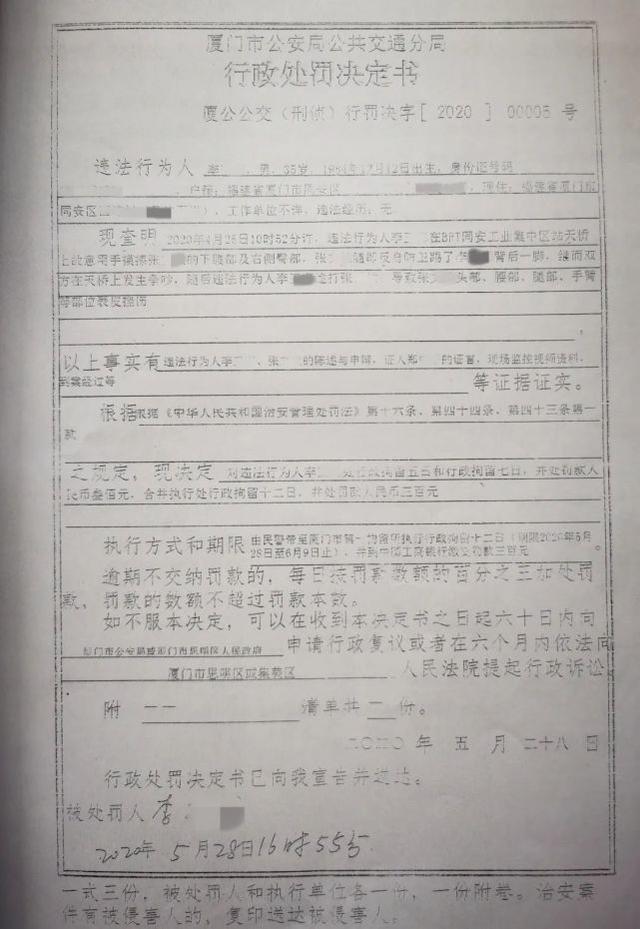 厦门市公安局公共交通分局
行政处罚决定书
厦公公交（刑侦）行罚决字[ 2020 ] 00005 号
违法行为人 李 男，35岁，1984年12月12日出生，身份证号码
户籍：福建省厦门市同安区 现住：福建省厦门市
同安区 工作单位不详，违法经历：无。
现查明 2020年4月26日10时52分许，违法行为人李 在BRT同安工业集中区站天桥
上故意用手摸揍张 的下腹部及右侧臀部，张 随即反身踹 李 背后一脚，继而双
方在天桥上发生争吵，随后违法行为人李 殴打张 导致张 头部、腰部、腿部、手臂
等部位表皮挫伤
以上事实有 违法行为人李 、张 的陈述与申辩，证人郑 的证言，现场监控视频资料，
到案经过等 等证据证实。
根据 根据《中华人民共和国治安管理处罚法》第十六条、第四十四条、第四十三条第一
款
之规定，现决定 对违法行为人李 处行政拘留五日和行政拘留七日，并处罚款人
民币叁佰元，合并执行处行政拘留十二日，并处罚款人民币三百元
执行方式和期限 由民警带至厦门市第一拘留所执行行政拘留十二日（期限2020年5月
28日至6月9日止），并到中国工商银行缴交罚款三百元
逾期不交纳罚款的，每日按罚款数额的百分之三加处罚
款，罚款的数额不超过罚款本数。
如不服本决定，可以在收到本决定书之日起六十日内向
厦门市公安局或厦门市思明区人民政府 申请行政复议或者在六个月内依法向
厦门市思明区或集美区 人民法院提起行政诉讼。
附 一一 清单共 一 份。
二〇二〇 年 五 月 二十八 日
行政处罚决定书已向我宣告并送达。
被处罚人 李
2020年 5月28日16时55分
一式三份，被处罚人和执行单位各一份，一份附卷。治安案
件有被侵害人的，复印送达被侵害人。